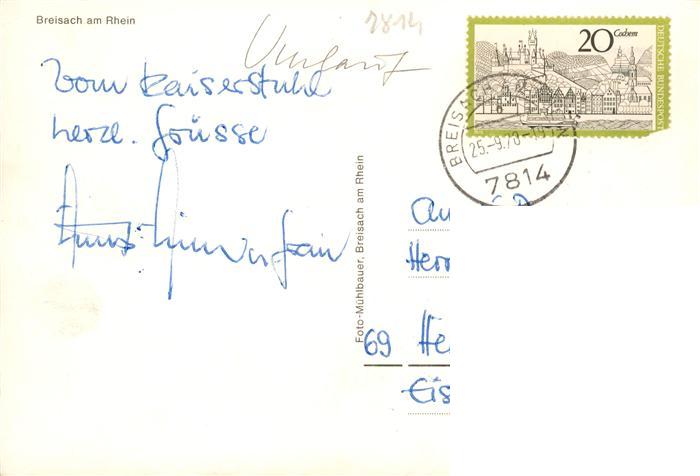 Breisach am Rhein
7814
20 Cochem
DEUTSCHE BUNDESPOST
Vom Kaiserstuhl
herzl. Grüsse
BREISACH
25.-9.70-
7814
Foto-Mühlbauer, Breisach am Rhein
An
Herr
69 He
Eis